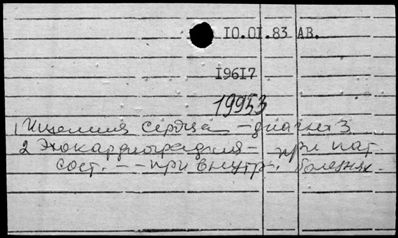 10.01.83 АВ.
19617
19953
1 Ишемия сердца – диагноз
2 Эхокардиография – при пат.
сост. – – при внутр. болезнях.